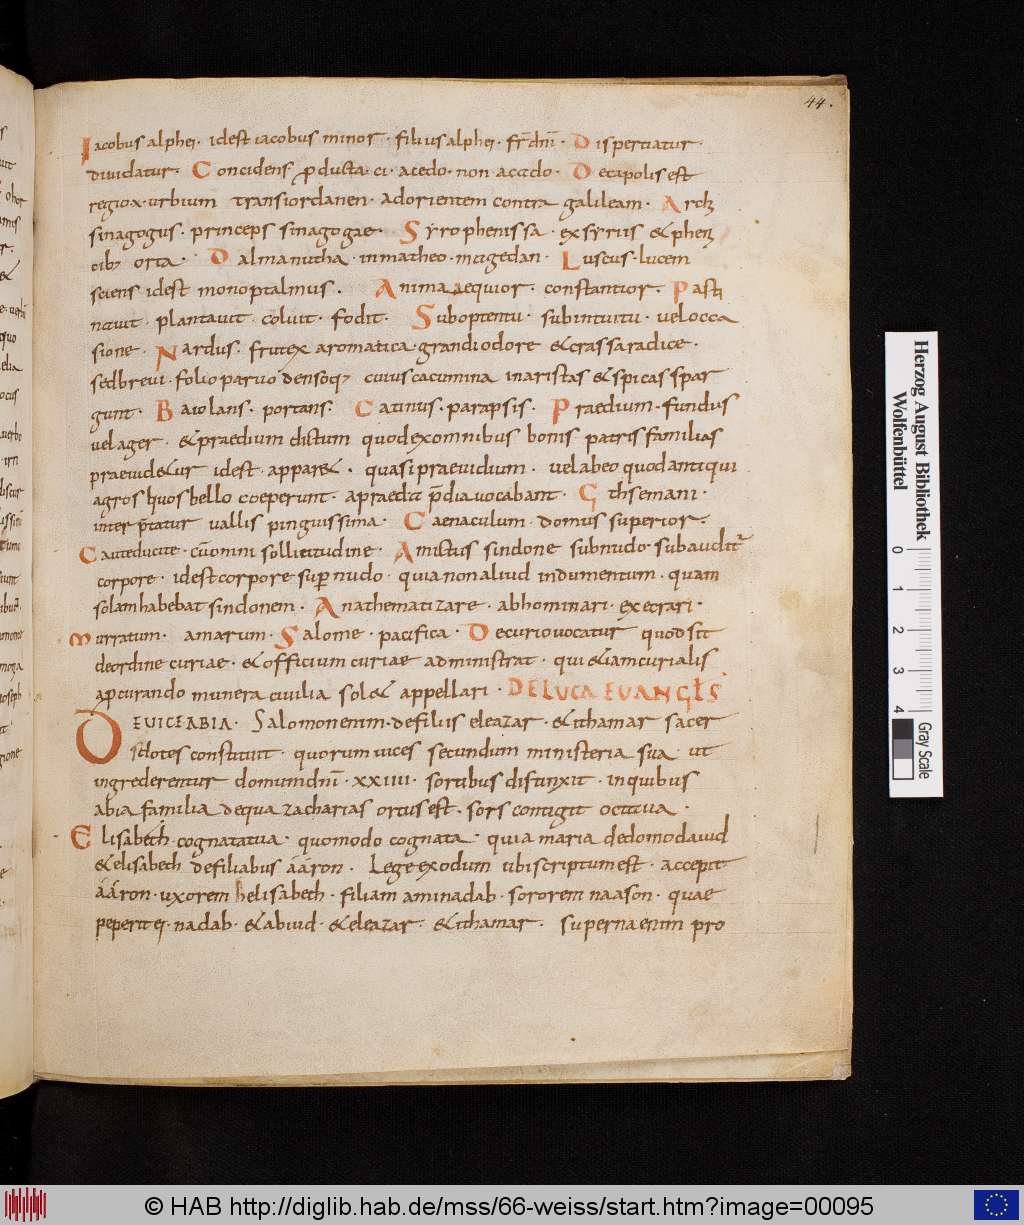 44.
Iacobus alphei · idest iacobus minor · filius alphei · fr̄ dnī · Dispertiatur ·
diuidatur · Concidens · ꝓducta · ci · acedo · non · accido · Decapolis est
regio x · urbium transiordanen · adorientem contra galileam · Arch
sinagogus · princeps sinagogae · Syrophenissa · exsyriis & phen
cib; orta · Dalmanutha · inmatheo · magedan · Luscus · lucem
sciens idest monoptalmus · Anima aequior · constantior · Pasti
nauit · plantauit · coluit · fodit · Suboptentu · subintuitu · uel occa
sione · Nardus · frutex aromatica · grandi odore & crassa radice ·
sed breui · folio paruo densoq; cuius cacumina in aristas & spicas spar
gunt · Baiolans · portans · Catinus · parapsis · Praedium · fundus
uel ager · & praedium dictum quod ex omnibus bonis patris familias
praeuid&ur idest · appar& · quasi praeuidium · uel ab eo quod antiqui
agros quos bello coeperunt · a praeda p̄dia uocabant · Gethsemani ·
inter p̄tatur uallis pinguissima · Caenaculum · domus superior ·
Caute ducite · cū omni sollicitudine · Amictus sindone sub nudo · subauditr̄
corpore · idest corpore super nudo · quia non aliud indumentum · quam
solam habebat sindonem · Anathematizare · abhominari · execrari ·
Murratum · amarum · Salome · pacifica · Decurio uocatur quod sit
de ordine curiae · & officium curiae administrat · qui & iam curialis
a procurando munera ciuilia sol& appellari · DE LUCA EUANGLS
DE UICE ABIA · Salomon enim · de filiis eleazar · & ithamar sacer
dotes constituit · quorum uices secundum ministeria sua ut
ingrederentur domum dnī · xxiiii · sortibus distinxit · in quibus
abia familia de qua zacharias ortus est · sors contigit octaua ·
Elisabeth · cognata tua · quomodo cognata · quia maria de domo dauid
& elisabeth de filiabus ááron · Lege exodum ubi scriptum est · accepit
ááron · uxorem helisabeth · filiam aminadab · sororem naason · quae
peperit ei · nadab · & abiud · & eleazar · & ithamar · superna enim pro
Herzog August Bibliothek
Wolfenbüttel
0 1 2 3 4
Gray Scale
© HAB http://diglib.hab.de/mss/66-weiss/start.htm?image=00095